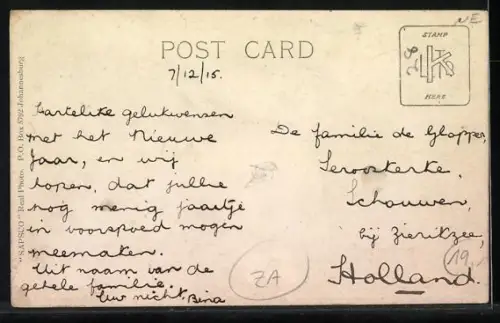 NE
POST CARD
7/12/15.
STAMP
HERE
"SAPSCO" Real Photo. P.O. Box 5792-Johannesburg
Hartelike gelukwensen
met het Nieuwe
Jaar, en wij
hopen, dat jullie
nog menig jaartje
in voorspoed mogen
meemaken.
Uit naam van de
gehele familie.
Uw nicht, Bina
De familie de Glopper,
Serooskerke,
Schouwen,
bij Zierikzee,
Holland.
ZA
19.